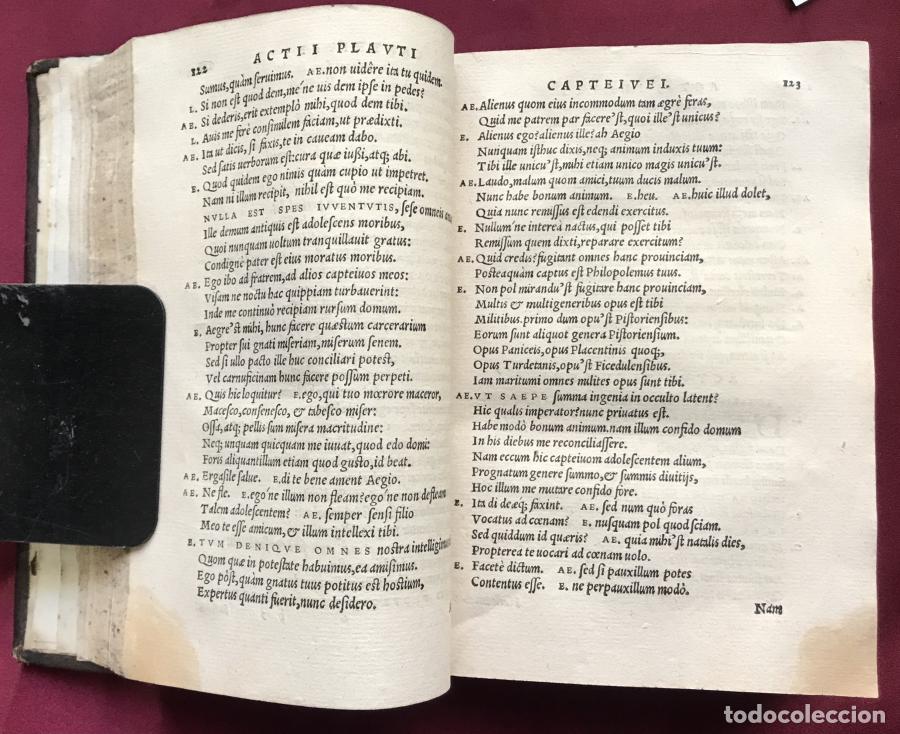 122 ACTII PLAVTI
Sumus, quàm seruimus. AE. non uidêre ita tu quidem.
L. Si non est quod dem, me'ne uis dem ipse in pedes?
AE. Si dederis, erit extemplò mihi, quod dem tibi.
L. Auis me ferè consimilem faciam, ut prædixti.
AE. Ita ut dicis, si faxis, te in caueam dabo.
Sed satis uerborum est: cura quæ iussi, atq; abi.
E. Quod quidem ego nimis quam cupio ut impetret.
Nam ni illum recipit, nihil est quò me recipiam.
NVLLA EST SPES IVVENTVTIS, sese omneis
Ille demum antiquis est adolescens moribus,
Quoi nunquam uoltum tranquillauit gratus:
Condignè pater est eius moratus moribus.
AE. Ego ibo ad fratrem, ad alios capteiuos meos:
Visam ne noctu hac quippiam turbauerint:
Inde me continuò recipiam rursum domum.
E. Aegre'st mihi, hunc facere quæstum carcerarium
Propter sui gnati miseriam, miserum senem.
Sed si ullo pacto ille huc conciliari potest,
Vel carnuficinam hunc facere possum perpeti.
AE. Quis hic loquitur? E. ego, qui tuo mœrore maceror,
Macesco, consenesco, & tabesco miser:
Ossa, atq; pellis sum misera macritudine:
Neq; unquam quicquam me iuuat, quod edo domi:
Foris aliquantillum etiam quod gusto, id beat.
AE. Ergasile salue. E. di te bene ament Aegio.
AE. Ne fle. E. ego'ne illum non fleam? ego'ne non defleam
Talem adolescentem? AE. semper sensi filio
Meo te esse amicum, & illum intellexi tibi.
E. TVM DENIQVE OMNES nostra intelligimus
Quom quæ in potestate habuimus, ea amisimus.
Ego pòst, quàm gnatus tuus potitus est hostium,
Expertus quanti fuerit, nunc desidero.
CAPTEIVEI. 123
AE. Alienus quom eius incommodum tam ægrè feras,
Quid me patrem par facere'st, quoi ille'st unicus?
E. Alienus ego? alienus ille? ah Aegio
Nunquam isthuc dixis, neq; animum induxis tuum:
Tibi ille unicu'st, mihi etiam unico magis unicu'st.
AE. Laudo, malum quom amici, tuum ducis malum.
Nunc habe bonum animum. E. heu. AE. huic illud dolet,
Quia nunc remissus est edendi exercitus.
E. Nullum'ne interea nactus, qui posset tibi
Remissum quem dixti, reparare exercitum?
AE. Quid credis? fugitant omnes hanc prouinciam,
Posteaquàm captus est Philopolemus tuus.
E. Non pol mirandu'st fugitare hanc prouinciam,
Multis & multigeneribus opus est tibi
Militibus. primo dum opu'st Pistoriensibus:
Eorum sunt aliquot genera Pistoriensium.
Opus Paniceis, opus Placentinis quoq;,
Opus Turdetanis, opu'st Ficedulensibus.
Iam maritumi omnes milites opus sunt tibi.
AE. VT SAEPE summa ingenia in occulto latent?
Hic qualis imperator? nunc priuatus est.
Habe modò bonum animum. nam illum confido domum
In his diebus me reconciliassere.
Nam eccum hic capteiuom adolescentem alium,
Prognatum genere summo, & summis diuitijs,
Hoc illum me mutare confido fore.
E. Ita di deæq; faxint. AE. sed num quò foras
Vocatus ad cœnam? E. nusquam pol quod sciam.
Sed quiddum id quæris? AE. quia mihi'st natalis dies,
Propterea te uocari ad cœnam uolo.
E. Facetè dictum. AE. sed si pauxillum potes
Contentus esse. E. ne perpauxillum modò.
Nam
todocoleccion